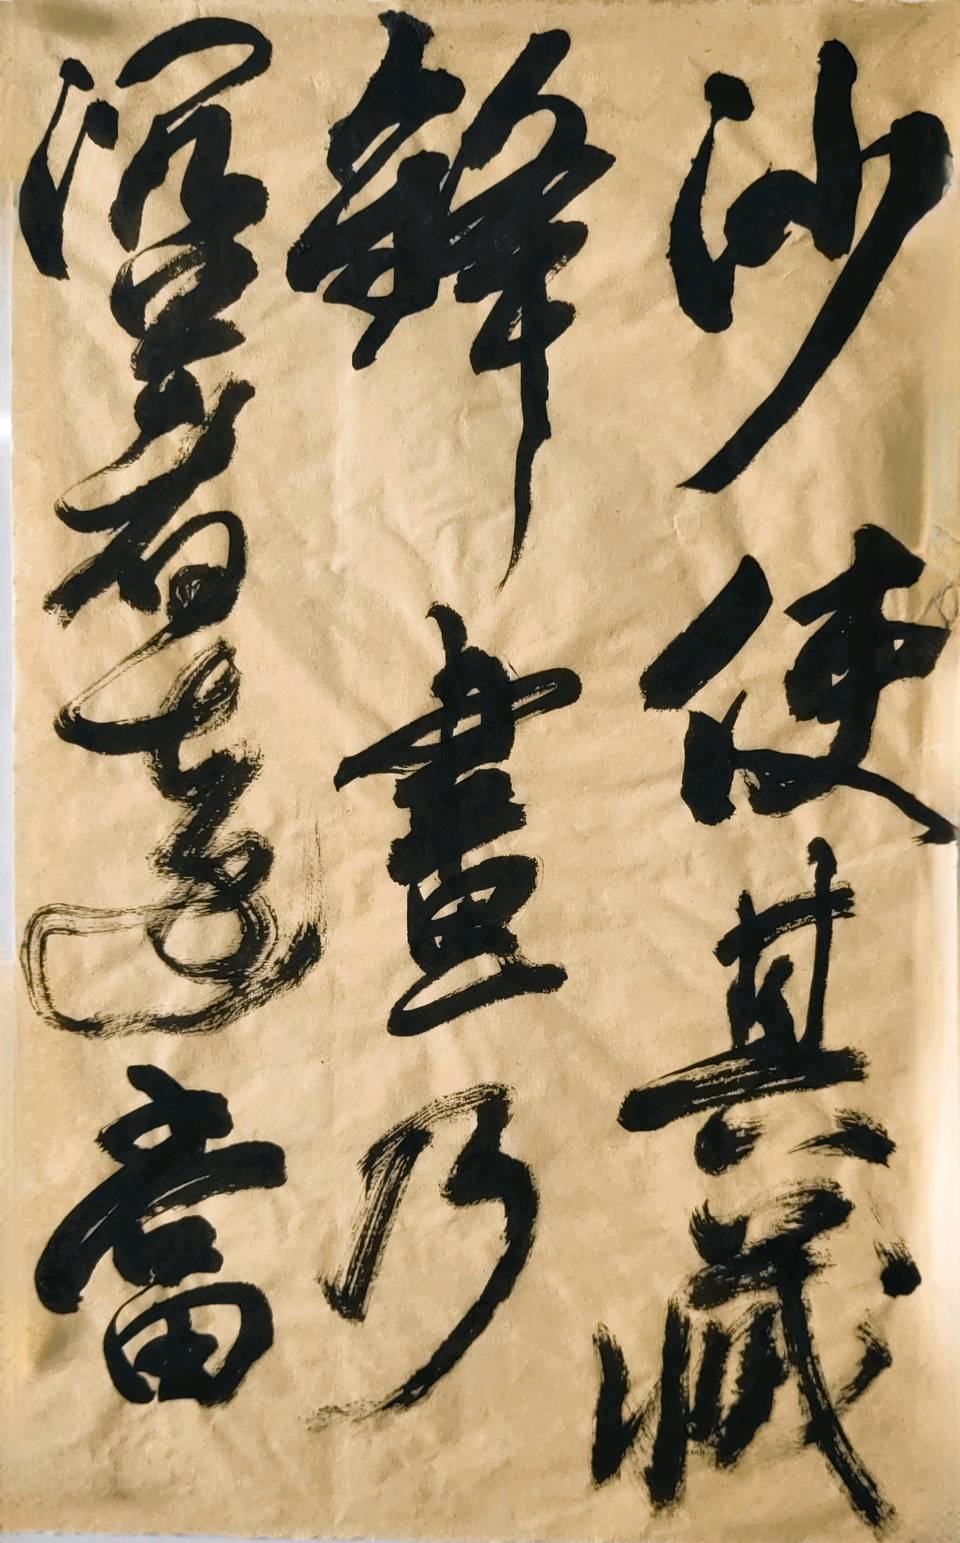 沙使其藏
鋒畫乃
沉著當